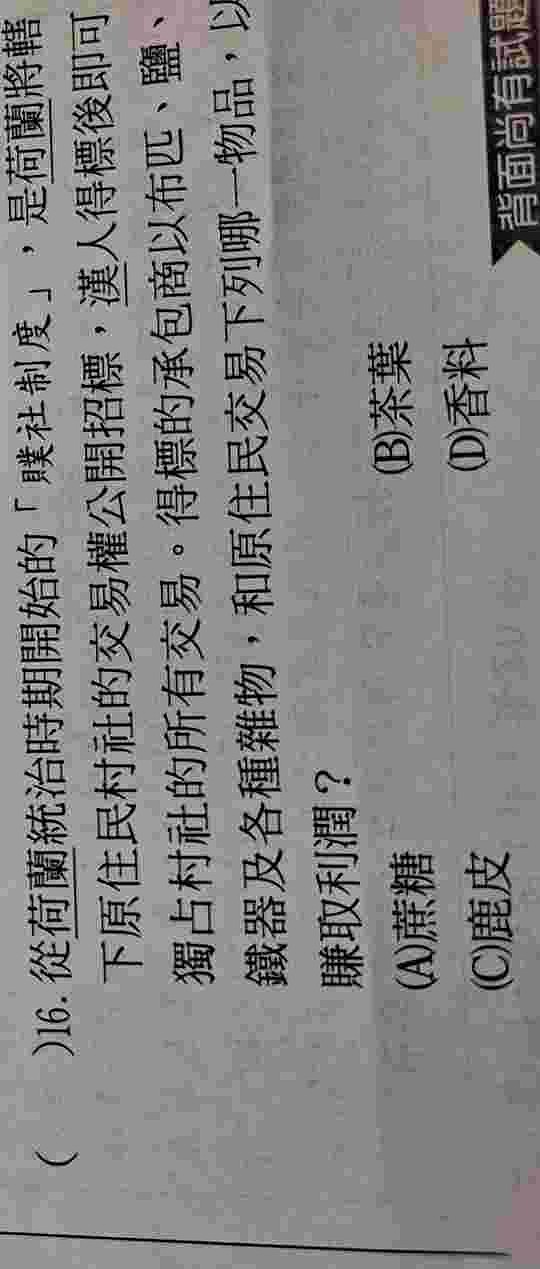 (　)16. 從荷蘭統治時期開始的「贌社制度」，是荷蘭將轄
下原住民村社的交易權公開招標，漢人得標後即可
獨占村社的所有交易。得標的承包商以布匹、鹽、
鐵器及各種雜物，和原住民交易下列哪一物品，以
賺取利潤？
(A)蔗糖　(B)茶葉
(C)鹿皮　(D)香料
背面尚有試題